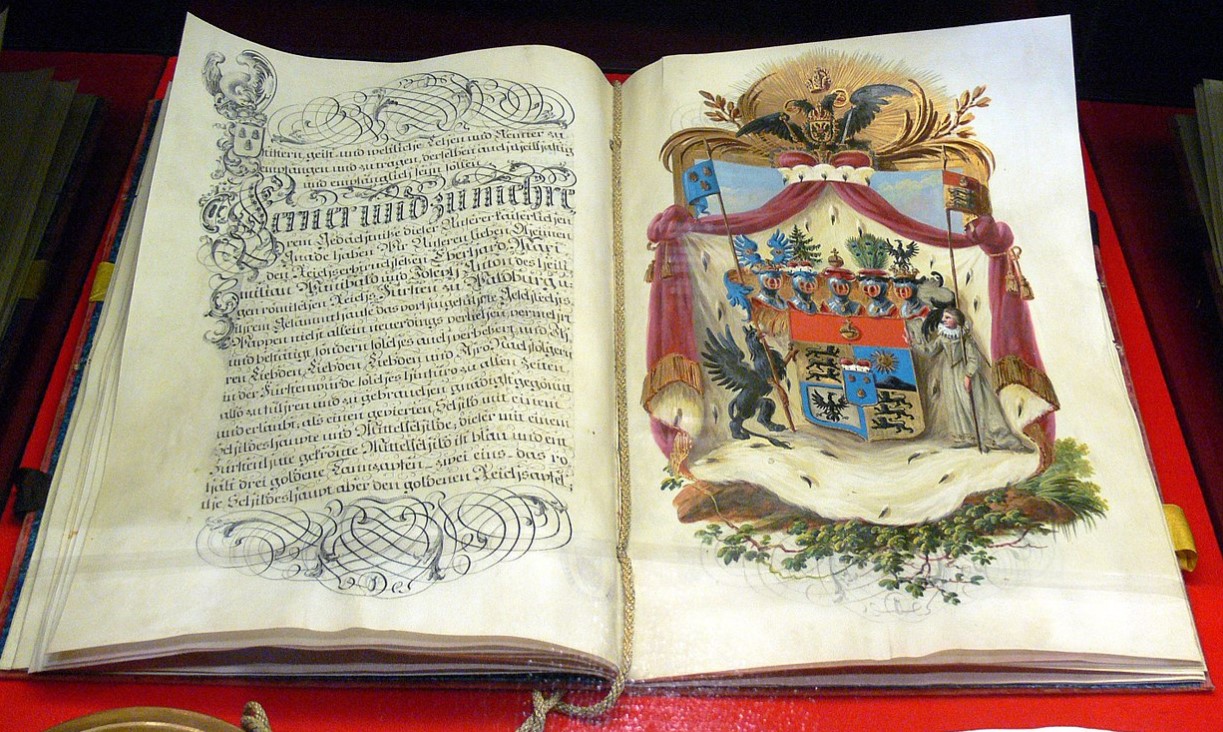 stiftern, geist- und weltliche Lehen und Aemter zu
empfangen und zu tragen, derselben auch theilhaftig
und empfänglich seyn sollen.
Ferner und zu mehre
rem Gedächtniße dieser Unserer kaiserlichen
Gnade haben Wir Unseren lieben Oheimen
den Reichserbtruchseßen Eberhard, Maxi
milian Wunibald und Joseph Anton des heili
gen römischen Reichs Fürsten zu Waldburg u:
ihrem Gesammthause das vorhin geführte Geschlechts
Wappen nicht allein neuerdings verliehen, vermehrt
und bestätigt, sondern solches auch verbeßert und Ih
ren Liebden, Liebden, Liebden und Ihro Nachfolgern
in der Fürstenwürde solches hinfüro zu allen Zeiten
also zu führen und zu gebrauchen gnädigst gegönnt
und erlaubt, als einen gevierten Schild mit einem
Schildeshaupte und Mittelschilde, dieser mit einem
Fürstenhute gekrönte Mittelschild ist blau und ent
hält drei goldene Tannzapfen, zwei eins, das ro
the Schildeshaupt aber den goldenen Reichsapfel,